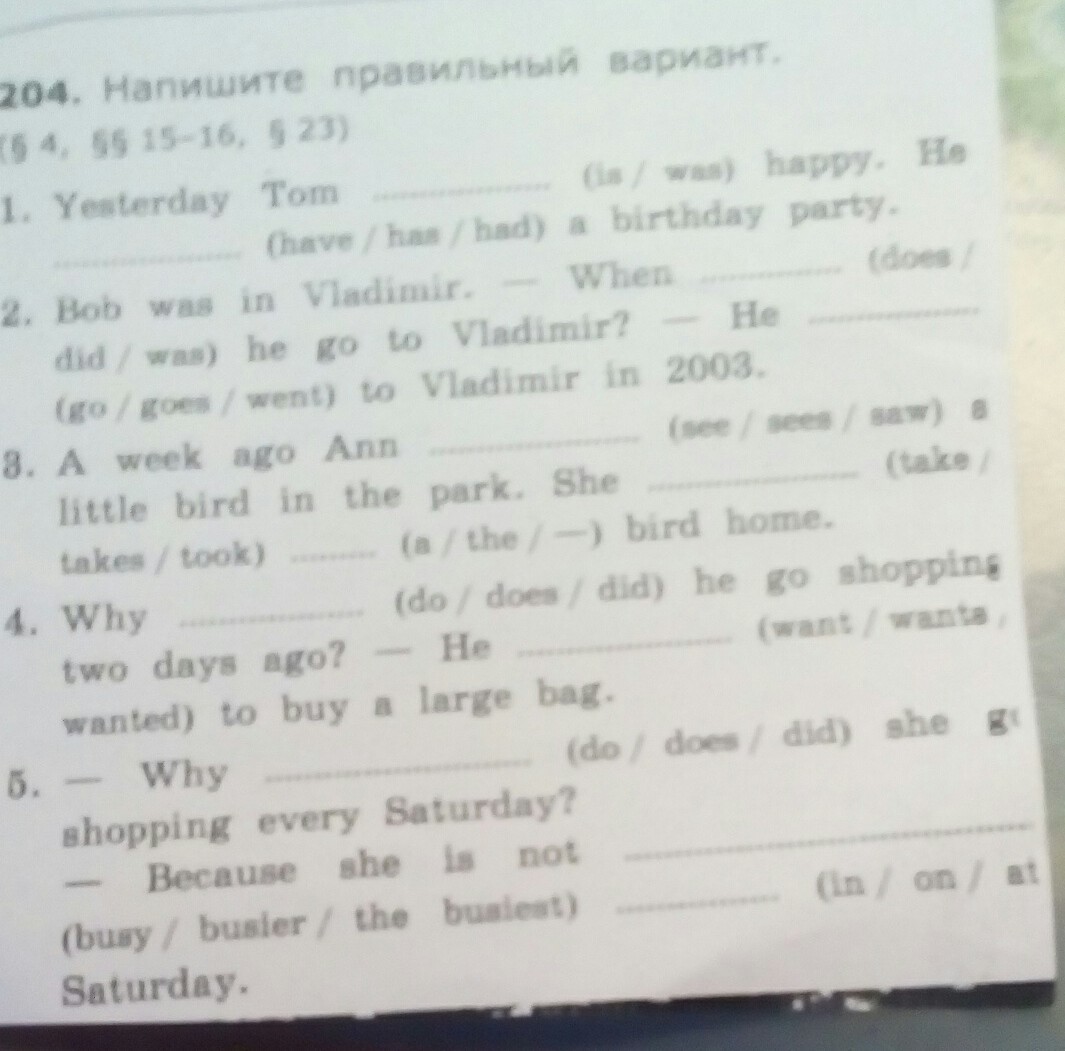 204. Напишите правильный вариант.
(§ 4, §§ 15–16, § 23)
1. Yesterday Tom .................... (is / was) happy. He
.................... (have / has / had) a birthday party.
2. Bob was in Vladimir. — When ............... (does /
did / was) he go to Vladimir? — He ....................
(go / goes / went) to Vladimir in 2003.
3. A week ago Ann ....................... (see / sees / saw) a
little bird in the park. She ....................... (take /
takes / took) ......... (a / the / —) bird home.
4. Why .................... (do / does / did) he go shopping
two days ago? — He ....................... (want / wants /
wanted) to buy a large bag.
5. — Why ............................. (do / does / did) she
shopping every Saturday?
— Because she is not .............................................
(busy / busier / the busiest) .................. (in / on / at
Saturday.